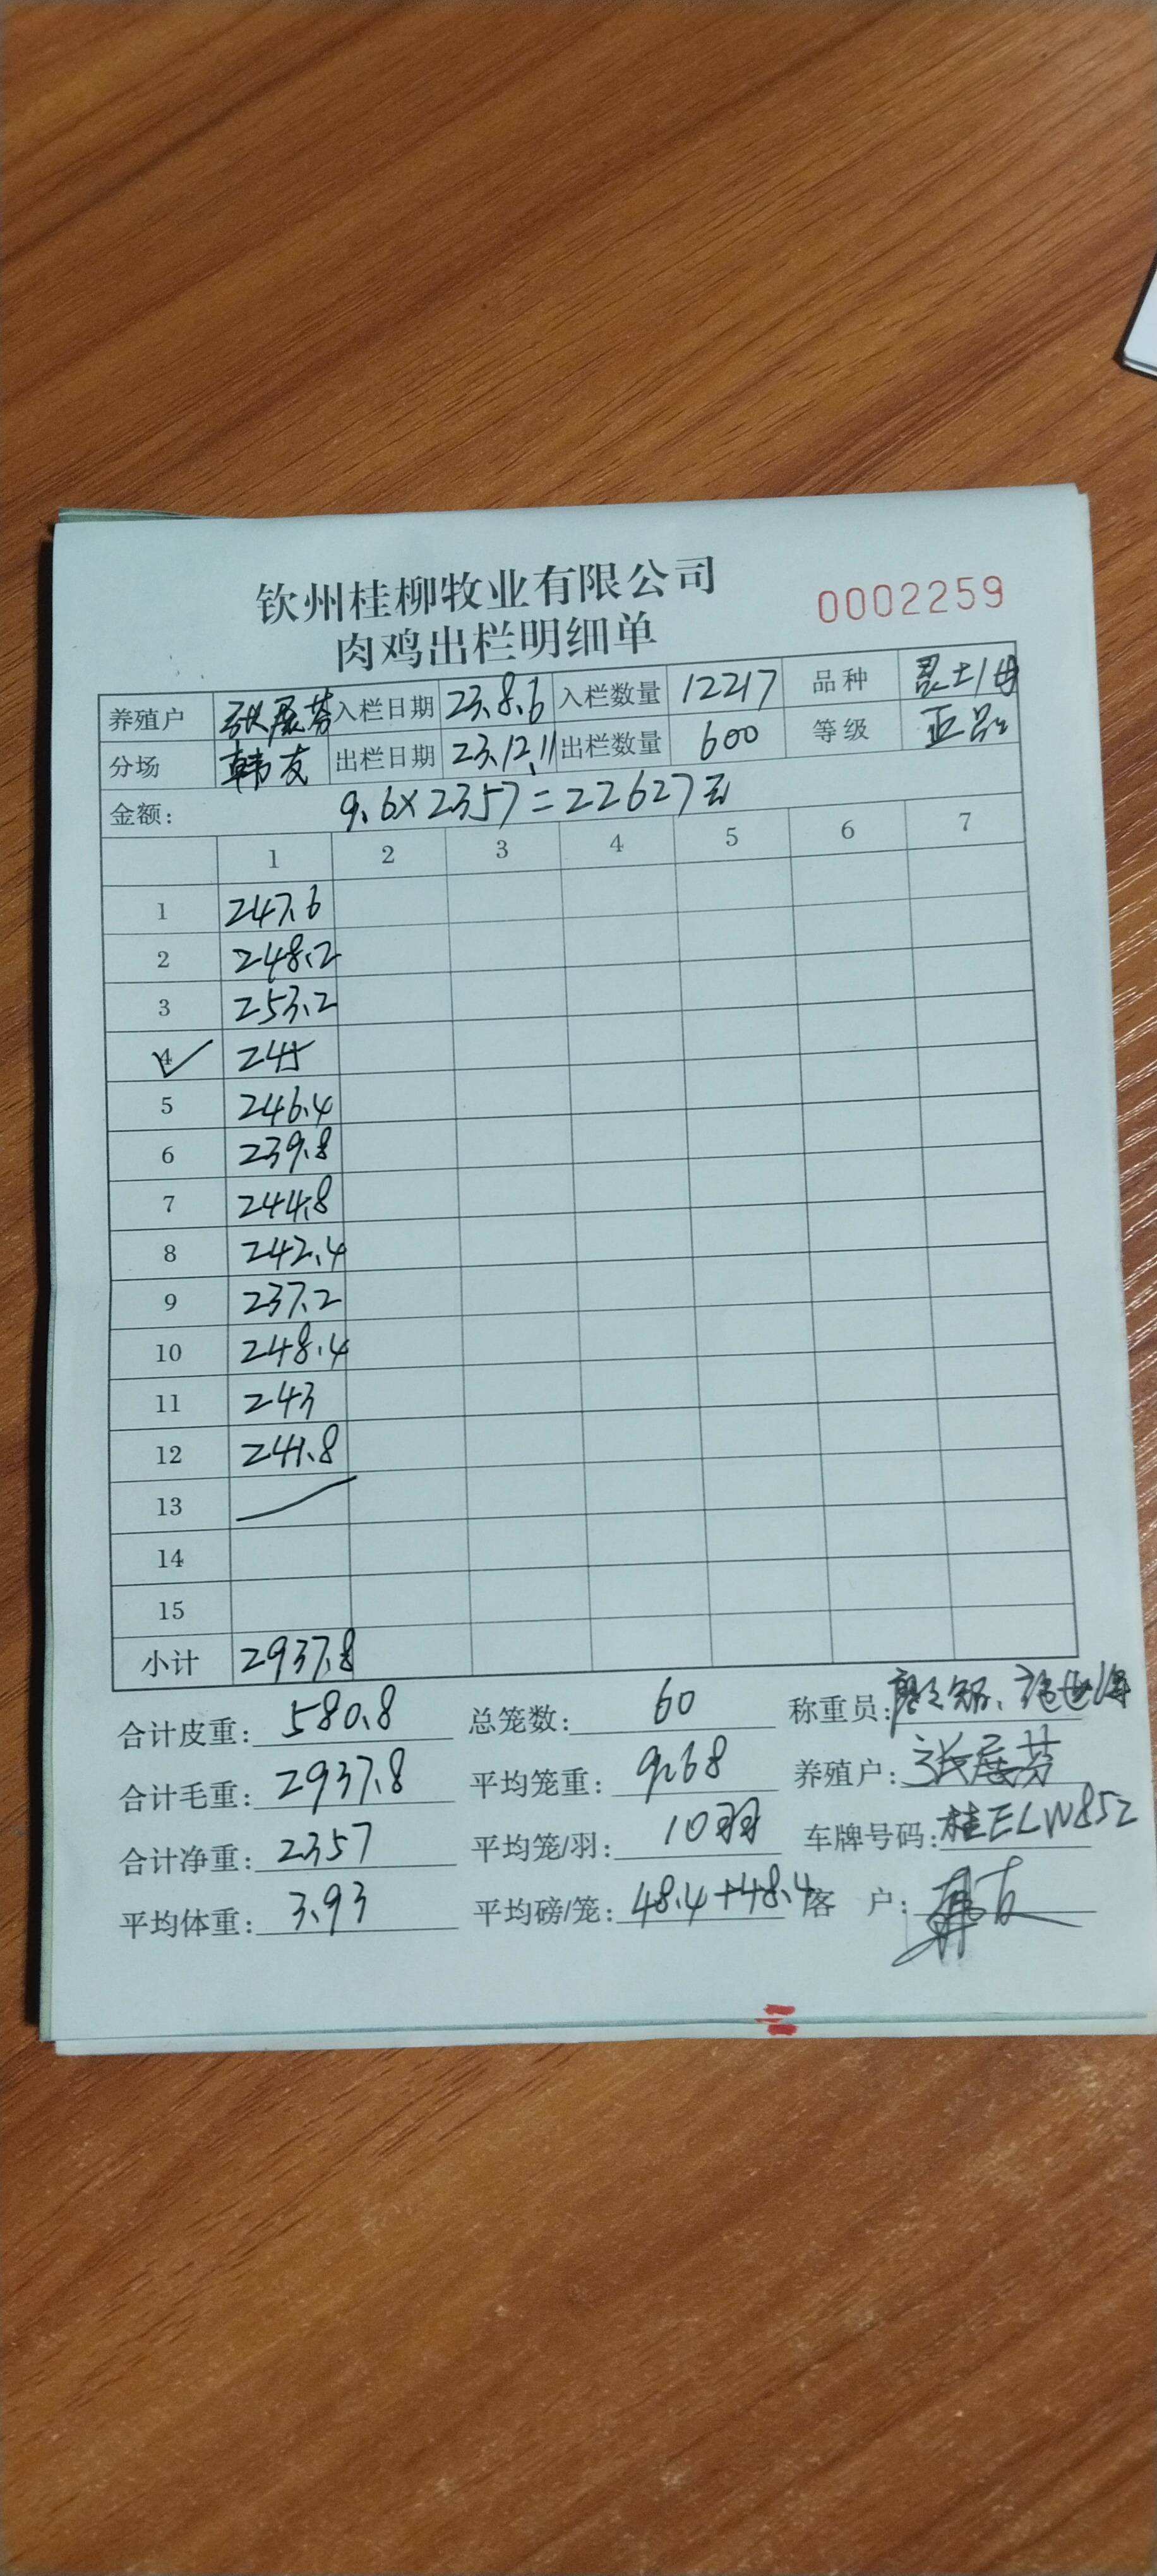 钦州桂柳牧业有限公司
肉鸡出栏明细单
0002259
养殖户 张展芬 入栏日期 23.8.6 入栏数量 12217 品种
分场 韩友 出栏日期 23.12.11 出栏数量 600 等级 亚品
金额: 9.6×2357=22627元
1 2 3 4 5 6 7
1 247.6
2 248.2
3 253.2
4 245
5 246.4
6 239.8
7 244.8
8 242.4
9 237.2
10 248.4
11 243
12 241.8
13
14
15
小计 2937.8
合计皮重: 580.8 总笼数: 60 称重员:
合计毛重: 2937.8 平均笼重: 9.68 养殖户: 张展芬
合计净重: 2357 平均笼/羽: 10羽 车牌号码: 桂ELW852
平均体重: 3.93 平均磅/笼: 48.4+48.4 客 户: 韩友